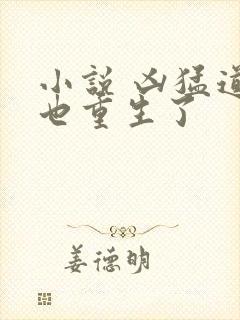 小说 凶猛道
也重生了
姜德明